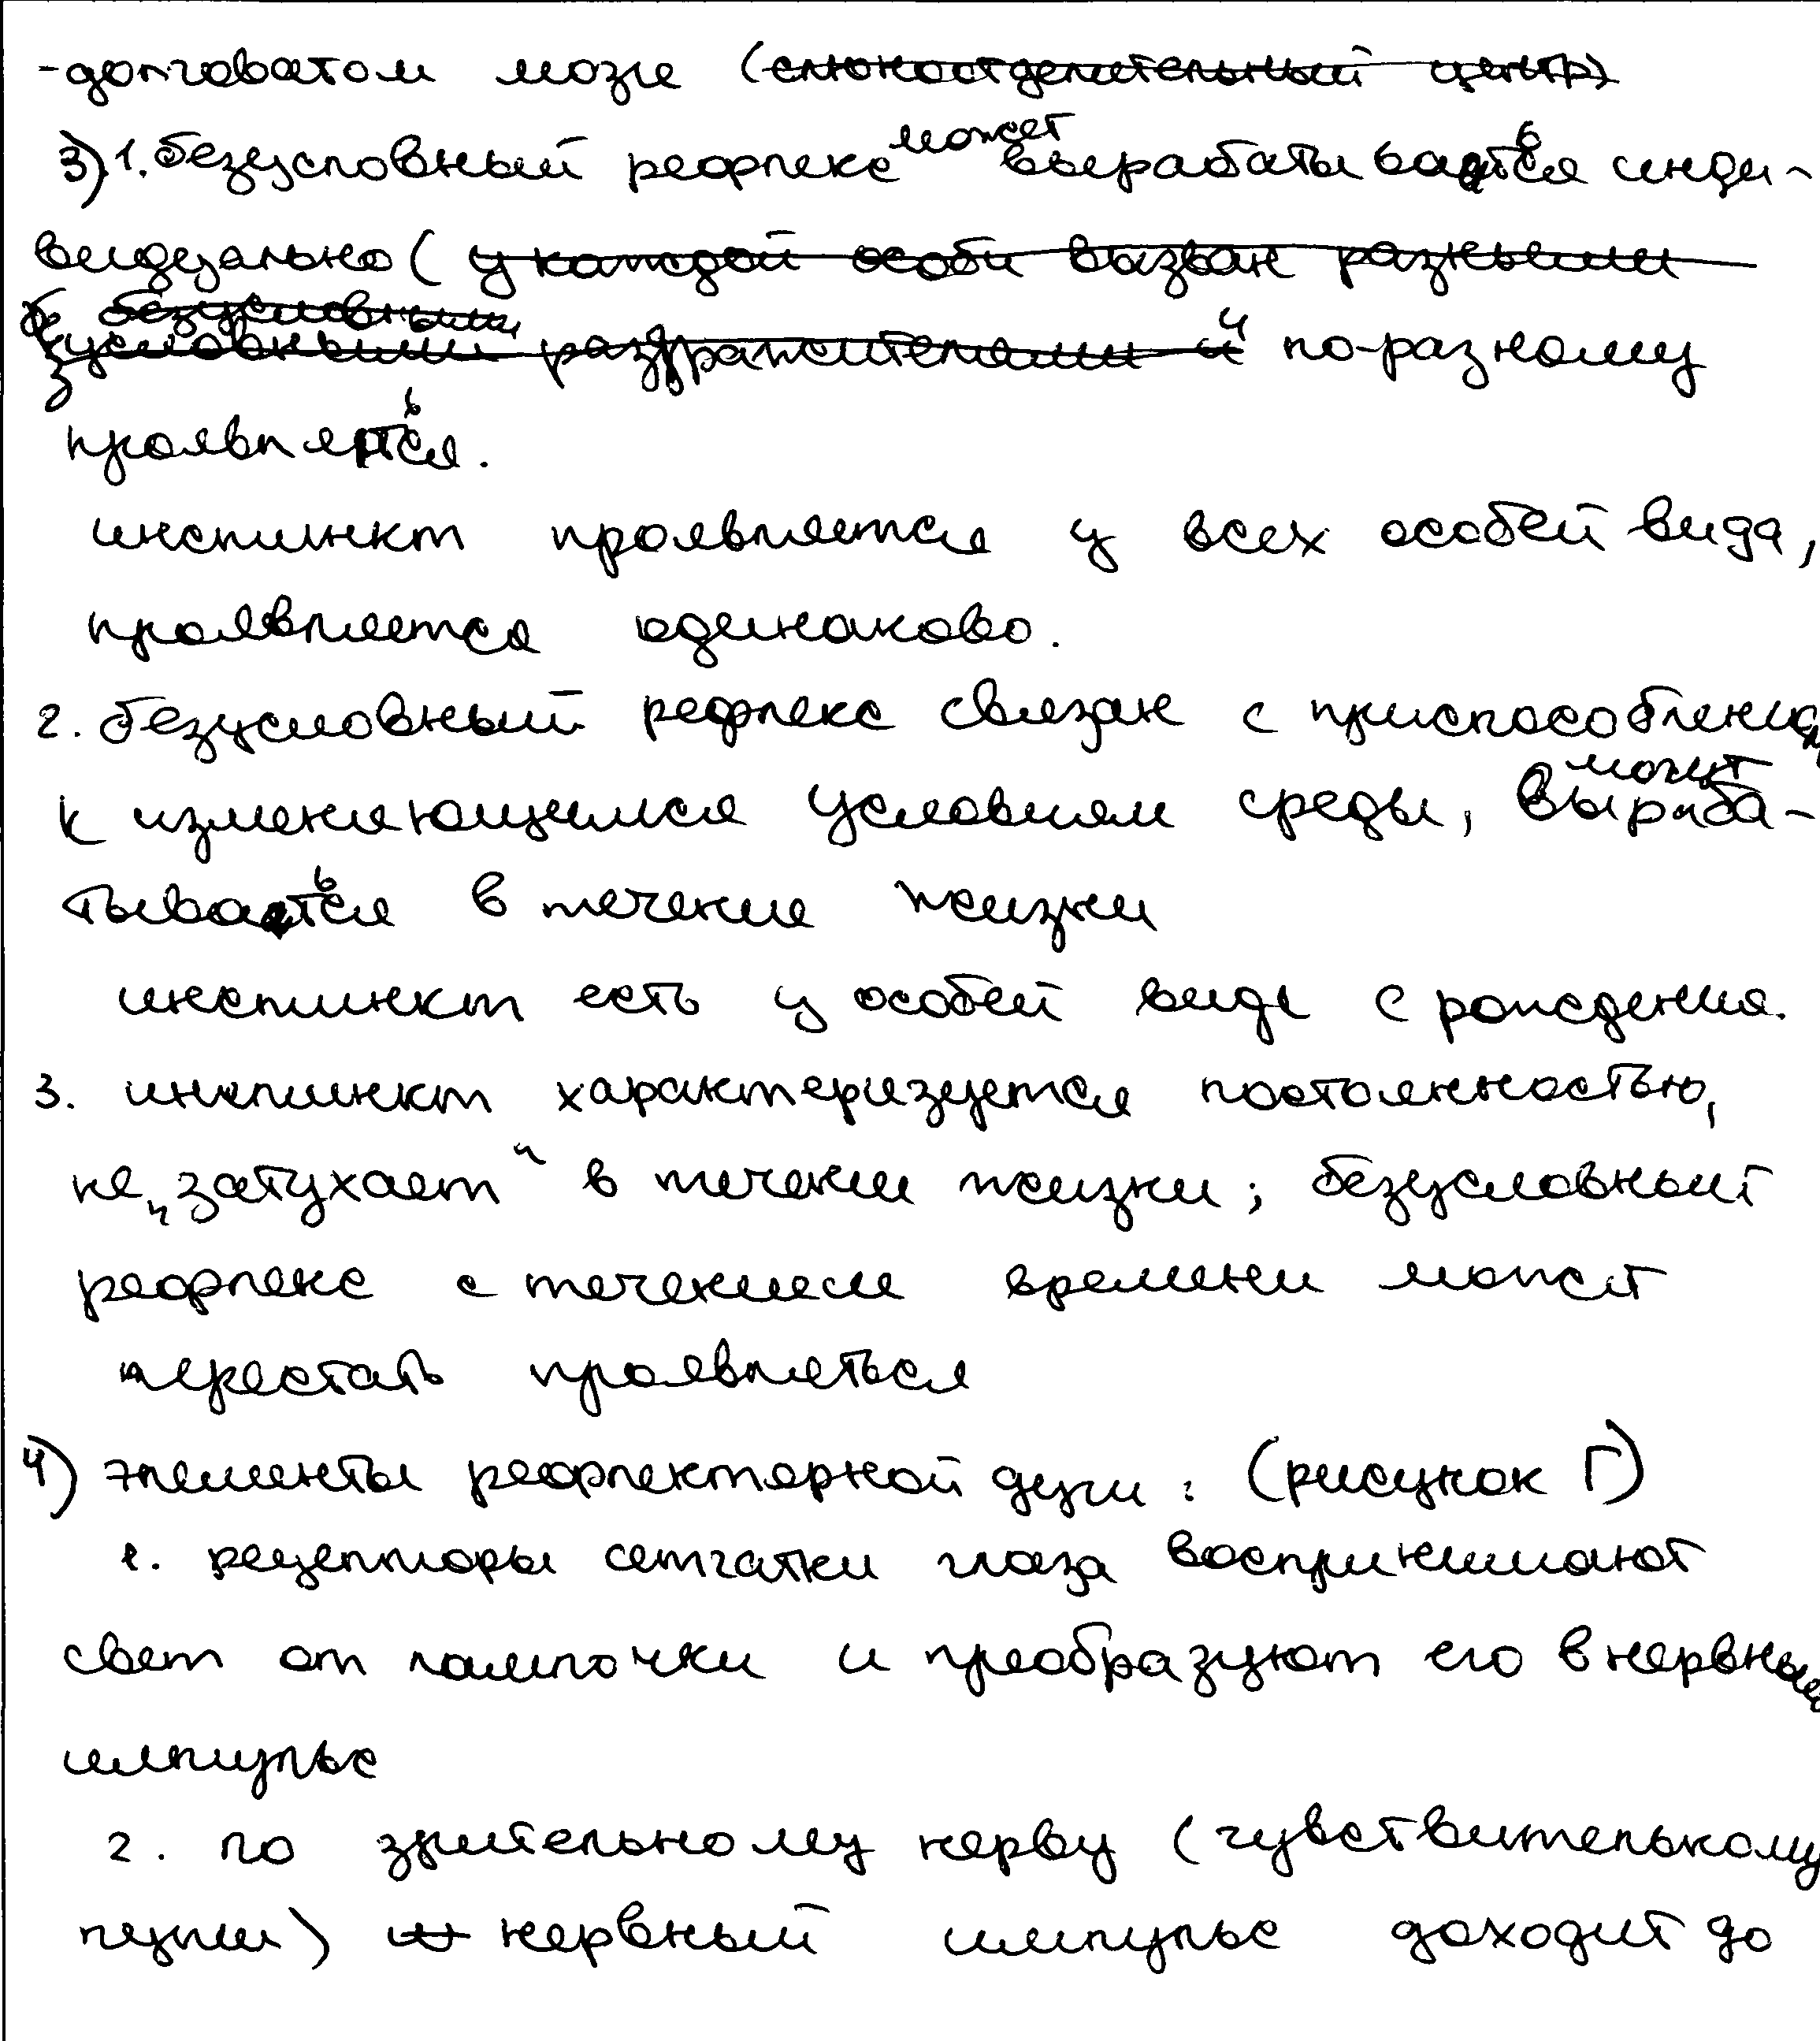 -долговатом мозге (слюноотделительный центр)
3) 1. безусловный рефлекс может вырабатываться инди-
видуально (у каждой особи вызван разными
безусловными
условными раздражителями и по-разному
проявляться.
инстинкт проявляется у всех особей вида,
проявляется одинаково.
2. безусловный рефлекс связан с приспособлением
к изменяющимся условиям среды, может выраба-
тываться в течение жизни
инстинкт есть у особей вида с рождения.
3. инстинкт характеризуется постоянностью,
не „затухает“ в течении жизни; безусловный
рефлекс с течением времени может
перестать проявляться
4) элементы рефлекторной дуги: (рисунок Г)
1. рецепторы сетчатки глаза воспринимают
свет от лампочки и преобразуют его в нервный
импульс
2. по зрительному нерву (чувствительному
пути) нервный импульс доходит до